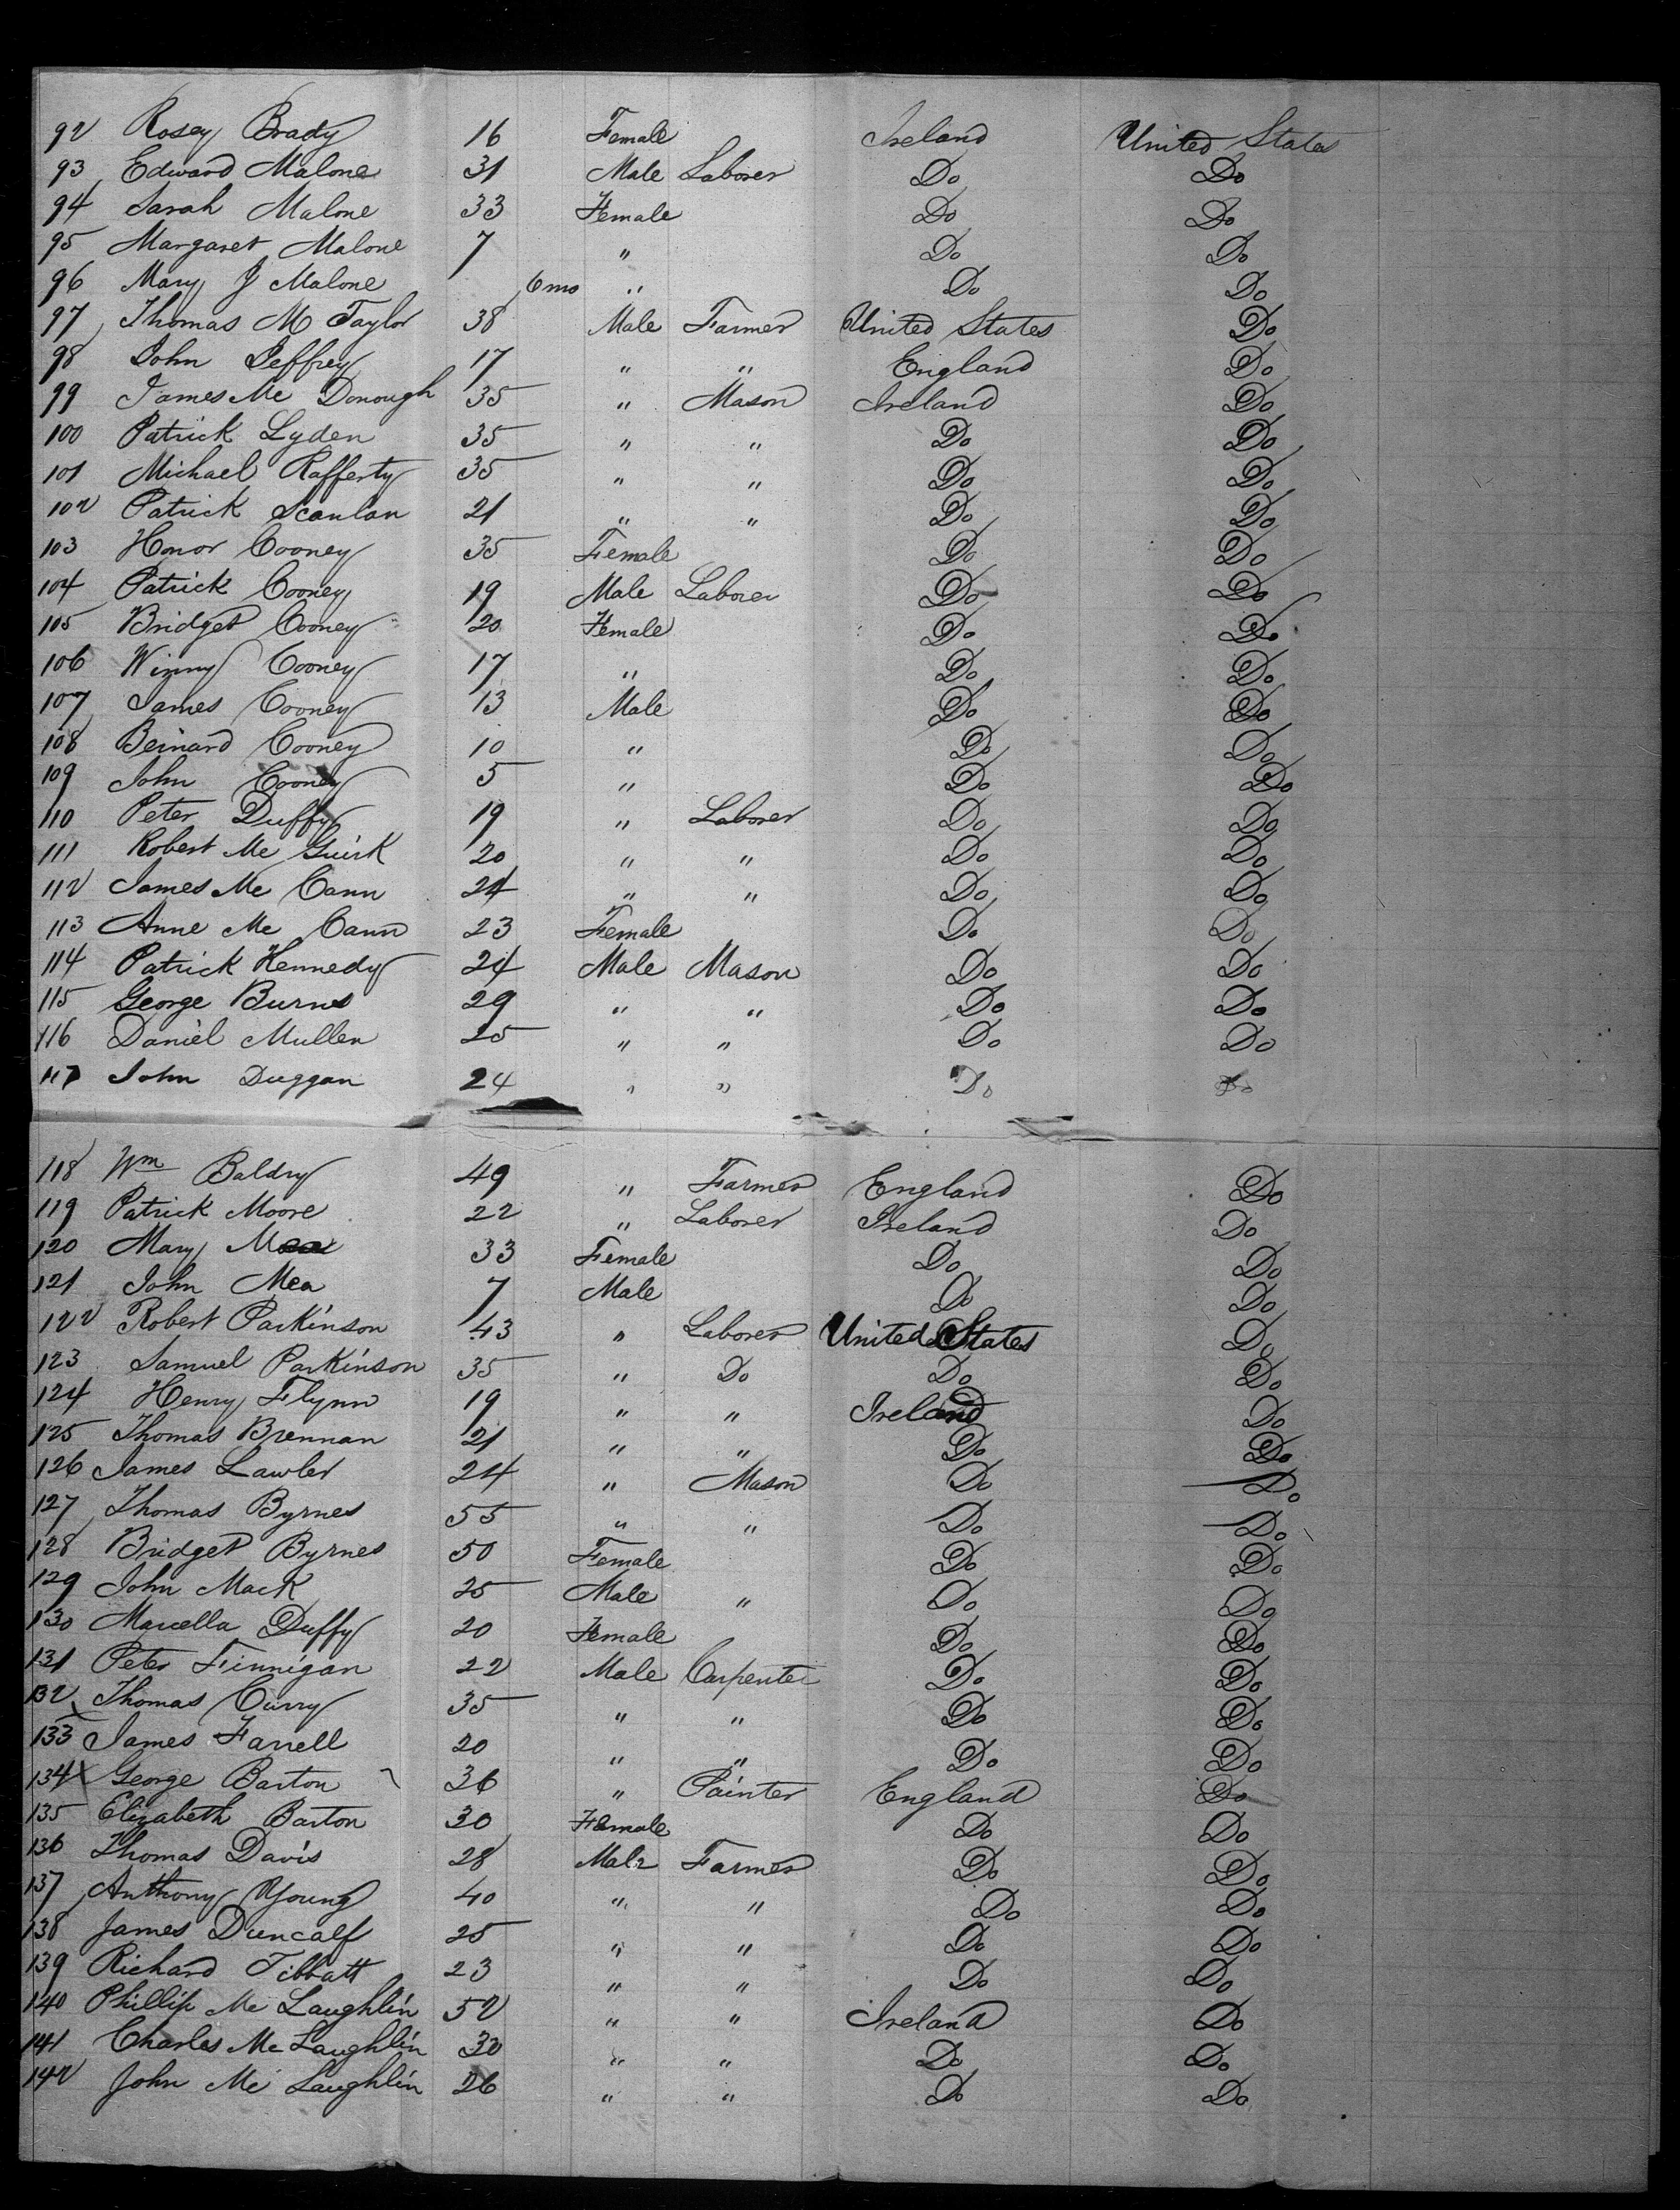 92 Rosey Brady 16 Female Ireland United States
93 Edward Malone 31 Male Laborer Do Do
94 Sarah Malone 33 Female Do Do
95 Margaret Malone 7 " Do Do
96 Mary J Malone 6 mo " Do Do
97 Thomas M Taylor 38 Male Farmer United States Do
98 John Jeffrey 17 " " England Do
99 James Mc Donough 35 " Mason Ireland Do
100 Patrick Lyden 35 " " Do Do
101 Michael Rafferty 35 " " Do Do
102 Patrick Scanlan 21 " " Do Do
103 Honor Cooney 35 Female Do Do
104 Patrick Cooney 19 Male Laborer Do Do
105 Bridget Cooney 20 Female Do Do
106 Winny Cooney 17 " Do Do
107 James Cooney 13 Male Do Do
108 Bernard Cooney 10 " Do Do
109 John Cooney 5 " Do Do
110 Peter Duffy 19 " Laborer Do Do
111 Robert Mc Guirk 20 " " Do Do
112 James Mc Cann 24 " " Do Do
113 Anne Mc Cann 23 Female Do Do
114 Patrick Kennedy 24 Male Mason Do Do
115 George Burns 29 " " Do Do
116 Daniel Mullen 25 " " Do Do
117 John Duggan 24 " " Do Do
118 Wm Baldry 49 " Farmer England Do
119 Patrick Moore 22 " Laborer Ireland Do
120 Mary 33 Female Do Do
121 John Mea 7 Male Do Do
122 Robert Parkinson 43 " Laborer United States Do
123 Samuel Parkinson 35 " Do Do Do
124 Henry Flynn 19 " " Ireland Do
125 Thomas Brennan 21 " " Do Do
126 James Lawler 24 " Mason Do Do
127 Thomas Byrnes 55 " " Do Do
128 Bridget Byrnes 50 Female Do Do
129 John Mack 25 Male " Do Do
130 Marcella Duffy 20 Female Do Do
131 Peter Finnigan 22 Male Carpenter Do Do
132 Thomas Curry 35 " " Do Do
133 James Farrell 20 " " Do Do
134 George Barton 36 " Painter England Do
135 Elizabeth Barton 30 Female Do Do
136 Thomas Davis 28 Male Farmer Do Do
137 Anthony Young 40 " " Do Do
138 James Duncalf 25 " " Do Do
139 Richard Tibbatt 23 " " Do Do
140 Phillip Mc Laughlin 52 " " Ireland Do
141 Charles Mc Laughlin 30 " " Do Do
142 John Mc Laughlin 26 " " Do Do